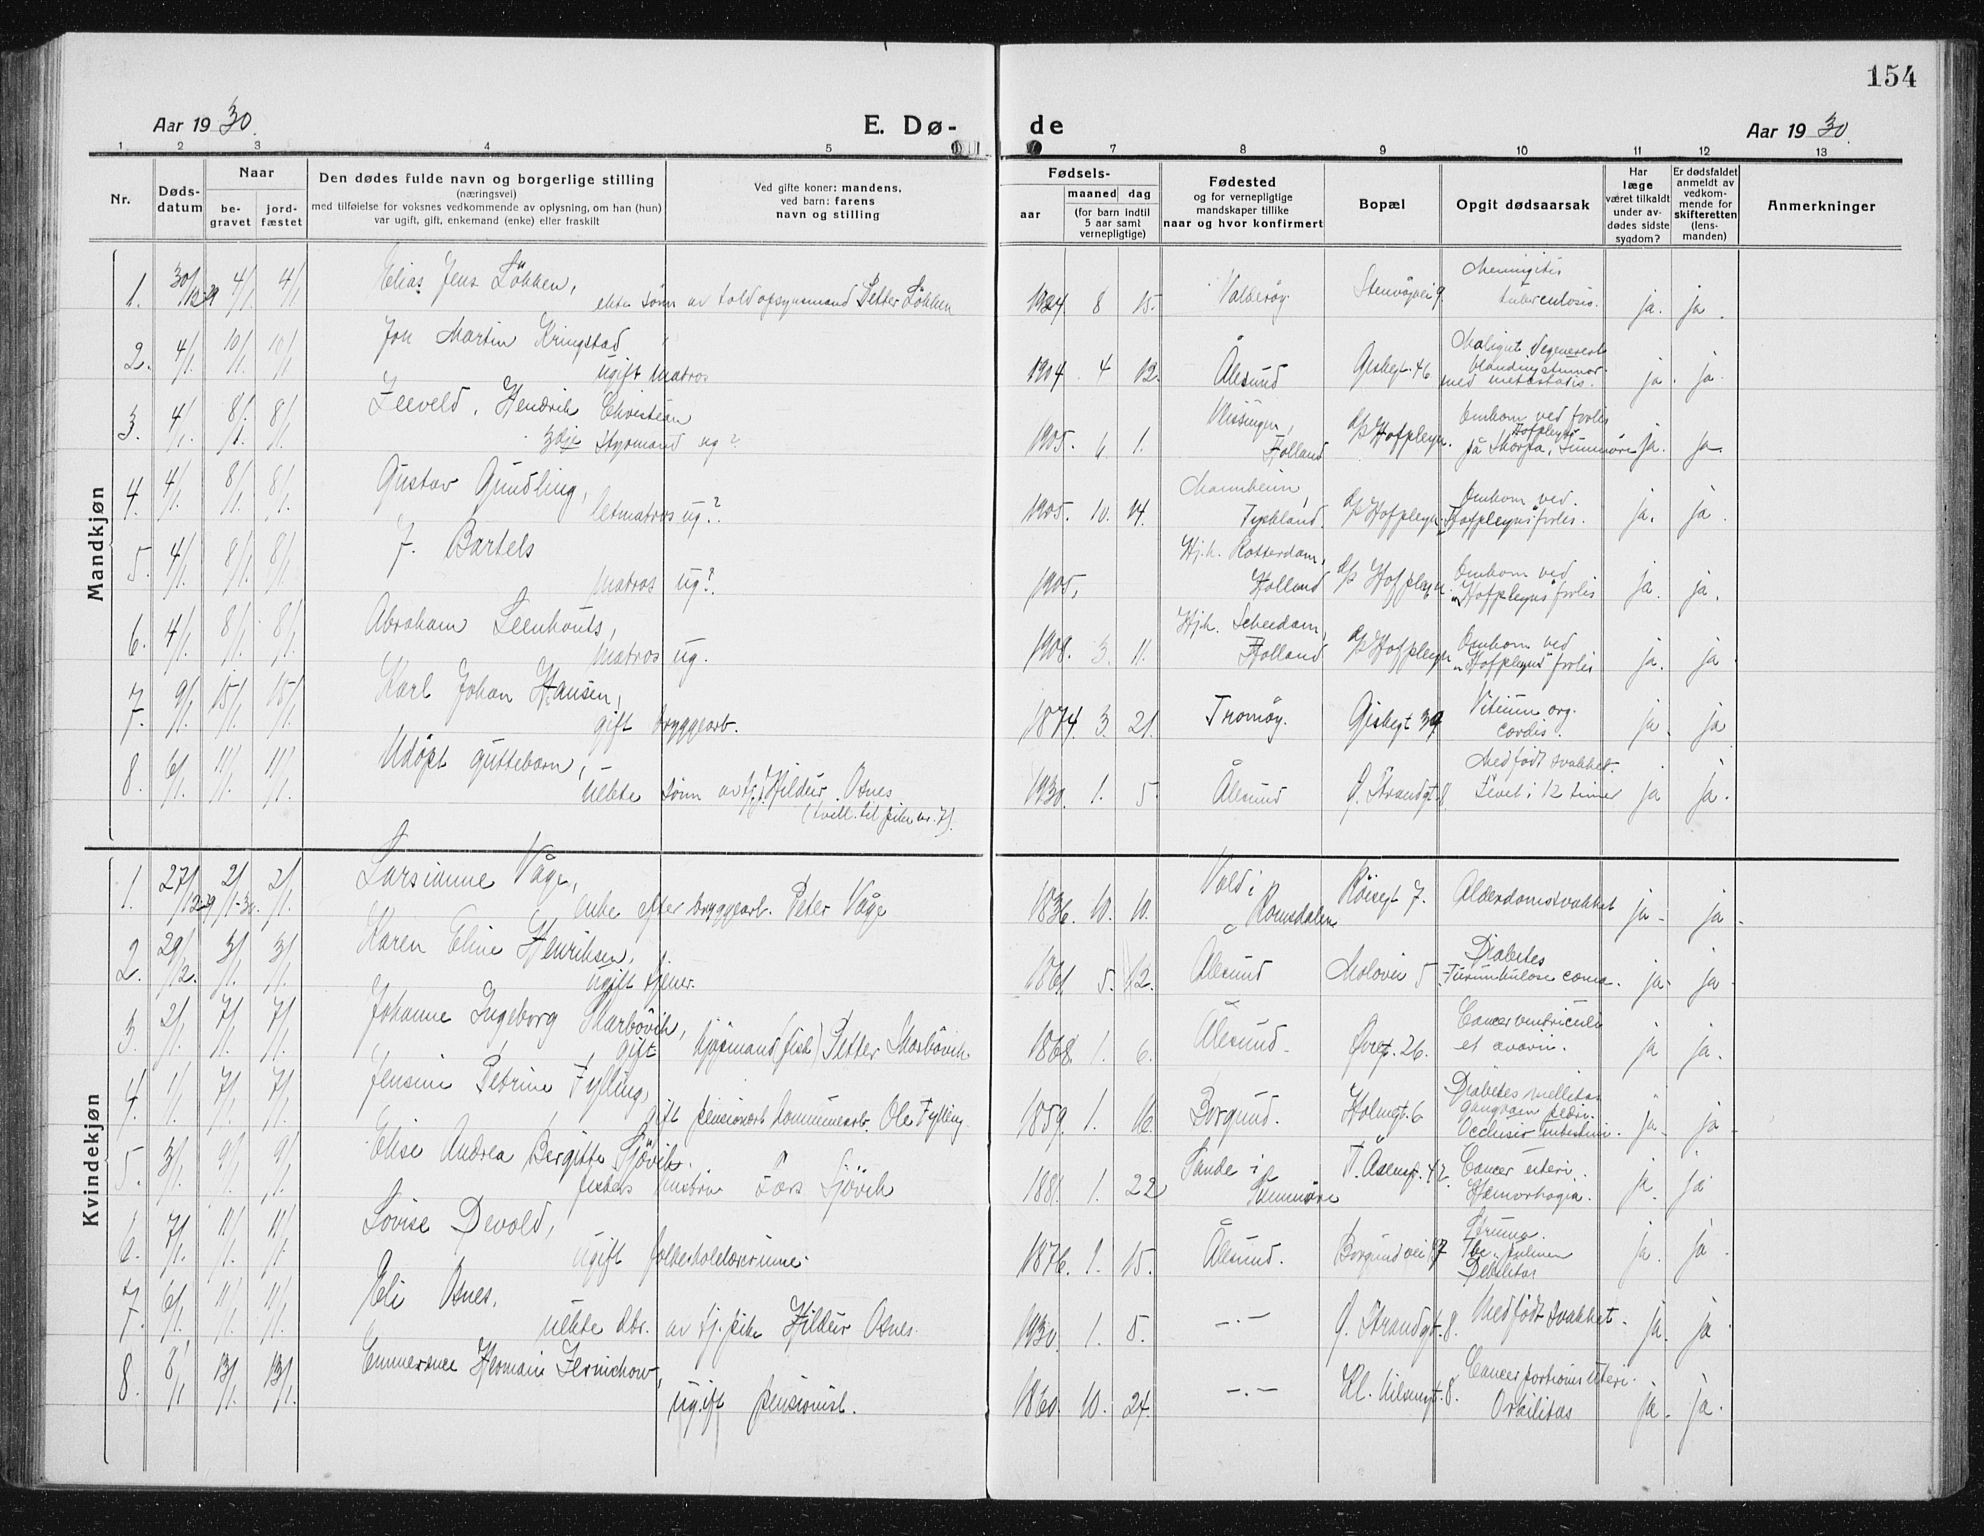 154
Aar 1930.
E. Dø-
de
Aar 1930.
1 2 3 4 5 7 8 9 10 11 12 13
Nr.
Døds-
datum
Naar
be-
gravet
jord-
fæstet
Den dødes fulde navn og borgerlige stilling
(næringsvei)
med tilføielse for voksnes vedkommende av oplysning, om han (hun)
var ugift, gift, enkemand (enke) eller fraskilt
Ved gifte koner: mandens,
ved barn: farens
navn og stilling
Fødsels-
aar
maaned
dag
(for barn indtil
5 aar samt
vernepligtige)
Fødested
og for vernepligtige
mandskaper tillike
naar og hvor konfirmert
Bopæl
Opgit dødsaarsak
Har
læge
været tilkaldt
under av-
dødes sidste
sygdom?
Er dødsfaldet
anmeldt av
vedkom-
mende for
skifteretten
(lens-
manden)
Anmerkninger
Mandkjøn
1. 30/12-29 4/1. 4/1 Elias Jens Løkken,
ekte sønn av toldopsynsmand Petter Løkken 1924. 8 15. Valderøy. Stenvågvei 9. Meningitis
tuberculosis. ja. ja.
2. 4/1. 10/1. 10/1 Jon Martin Kringstad
ugift matros 1904. 4 12. Ålesund Giskegt. 46 Malignt degenerert
blandingstumor
med metastasis. ja. ja.
3. 4/1. 8/1. 8/1. Zeeveld, Hendrik Christian
3dje Styrmand ug? 1905. 6. 1. Vlissingen,
Holland d/s Hofpleyn. Omkom ved forlis
"Hofpleyns"
på Skorpa, Sunnmøre ja. ja.
4. 4/1. 8/1. 8/1. Gustav Gundling,
letmatros ug?. 1905. 10. 14. Mannheim,
Tyskland. d/s Hofpleyn. Omkom ved
"Hofpleyns" forlis. ja. ja.
5. 4/1. 8/1. 8/1. J. Bartels
matros ug? 1905. Hjh. Rotterdam,
Holland d/s Hofpleyn. Omkom ved
"Hofpleyns" forlis ja. ja.
6. 4/1. 8/1 8/1. Abraham Leenhouts,
matros ug. 1908. 3. 11. Hjh. Schiedam,
Holland d/s Hofpleyn Omkom ved
"Hofpleyns" forlis ja. ja.
7. 9/1. 15/1 15/1. Karl Johan Hansen,
gift bryggearb. 1874. 3. 21. Tromøy. Giskegt 39 Vitium org.
cordis. ja. ja
8. 6/1 11/1. 11/1. Udøpt guttebarn,
uekte sønn av tj. Hildur Osnes
(tvill. til pike nr. 7). 1930. 1. 5. Ålesund Ø. Strandgt. 8. Medfødt svakhet.
Levet i 12 timer ja ja.
Kvindekjøn
1. 27/12-29 2/1-30. 2/1. Larsianne Våge,
enke efter bryggearb. Peter Våge 1836. 10. 10. Vold i
Romsdalen Røisegt 7. Alderdomssvakhet ja. ja.
2. 29/12. 3/1. 3/1. Karen Eline Henriksen,
ugift tjener. 1861. 5. 12. Ålesund Molovei 5 Diabetes
Furunkulose coma. ja. ja.
3. 2/1. 7/1. 7/1. Johanne Ingeborg Skarbövik,
gift Petter Skarbövik 1868. 1. 6. Ålesund. Øvregt. 26. Cancer ventriculi
et ovarii. ja ja.
4. 1/1. 7/1. 7/1. Jensine Petrine Fylling,
gift pensionert kommunearb. Ole Fylling. 1859. 1. 16. Borgund. Holmgt. 6 Diabetes mellitus
gangræn pedis.
Occlusio intestini. ja. ja.
5. 3/1. 9/1. 9/1. Elise Andrea Bergitte Sjövik.
fiskers hustru Lars Sjövik 1881. 1. 22 Sande i
Sunnmøre Cancer uteri.
Hæmorrhagia. ja. ja
6. 7/1. 11/1. 11/1. Lovise Devold,
ugift folkeskolelærerinne. 1876. 1. 15. Ålesund. Borgundvei Struma.
Tbc. pulmon
Debilitas ja. ja.
7. 6/1. 11/1 11/1. Eli Osnes,
uekte dtr. av tj. pike Hildur Osnes. 1930. 1. 5. —.— Ø. Strandgt. 8. Medfødt svakhet. ja. ja.
8. 8/1 13/1. 13/1. Emmerence Hermani Zernichow,
ugift pensionist. 1860. 10. 27. —.— Kl. Nilsengt. 8. Cancer portionis uteri.
ja. ja.